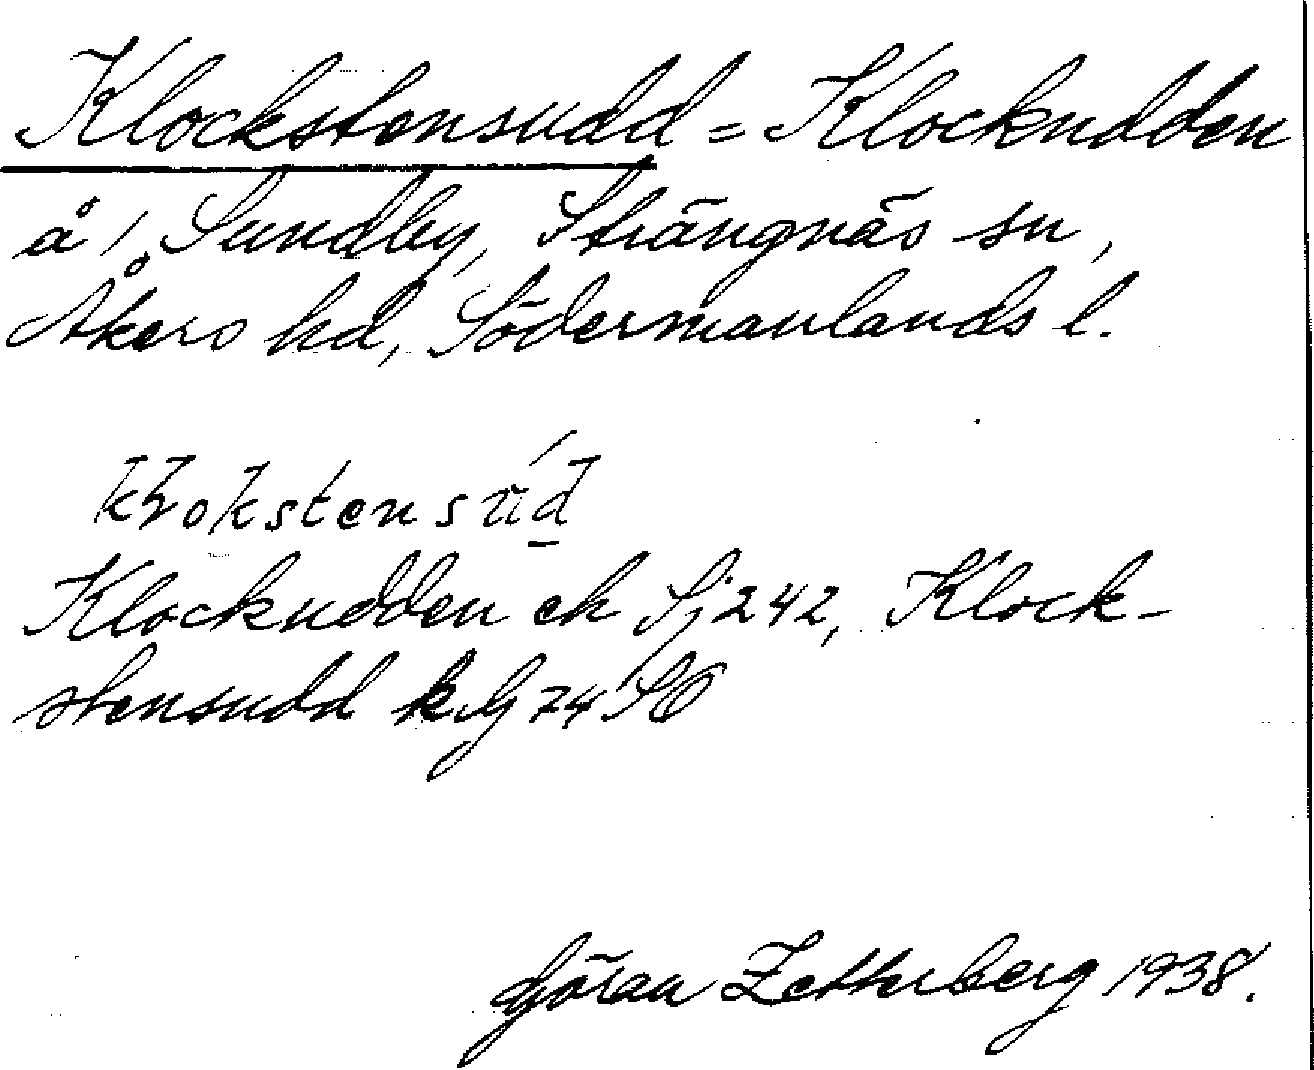 Klockstensudd = Klockudden
å/ Sundby, Strängnäs sn,
Åkers hd, Södermanlands l.
Klockudden ek Sj 242, Klock-
stensudd k bl 74 SO
Göran Zetterberg 1938.